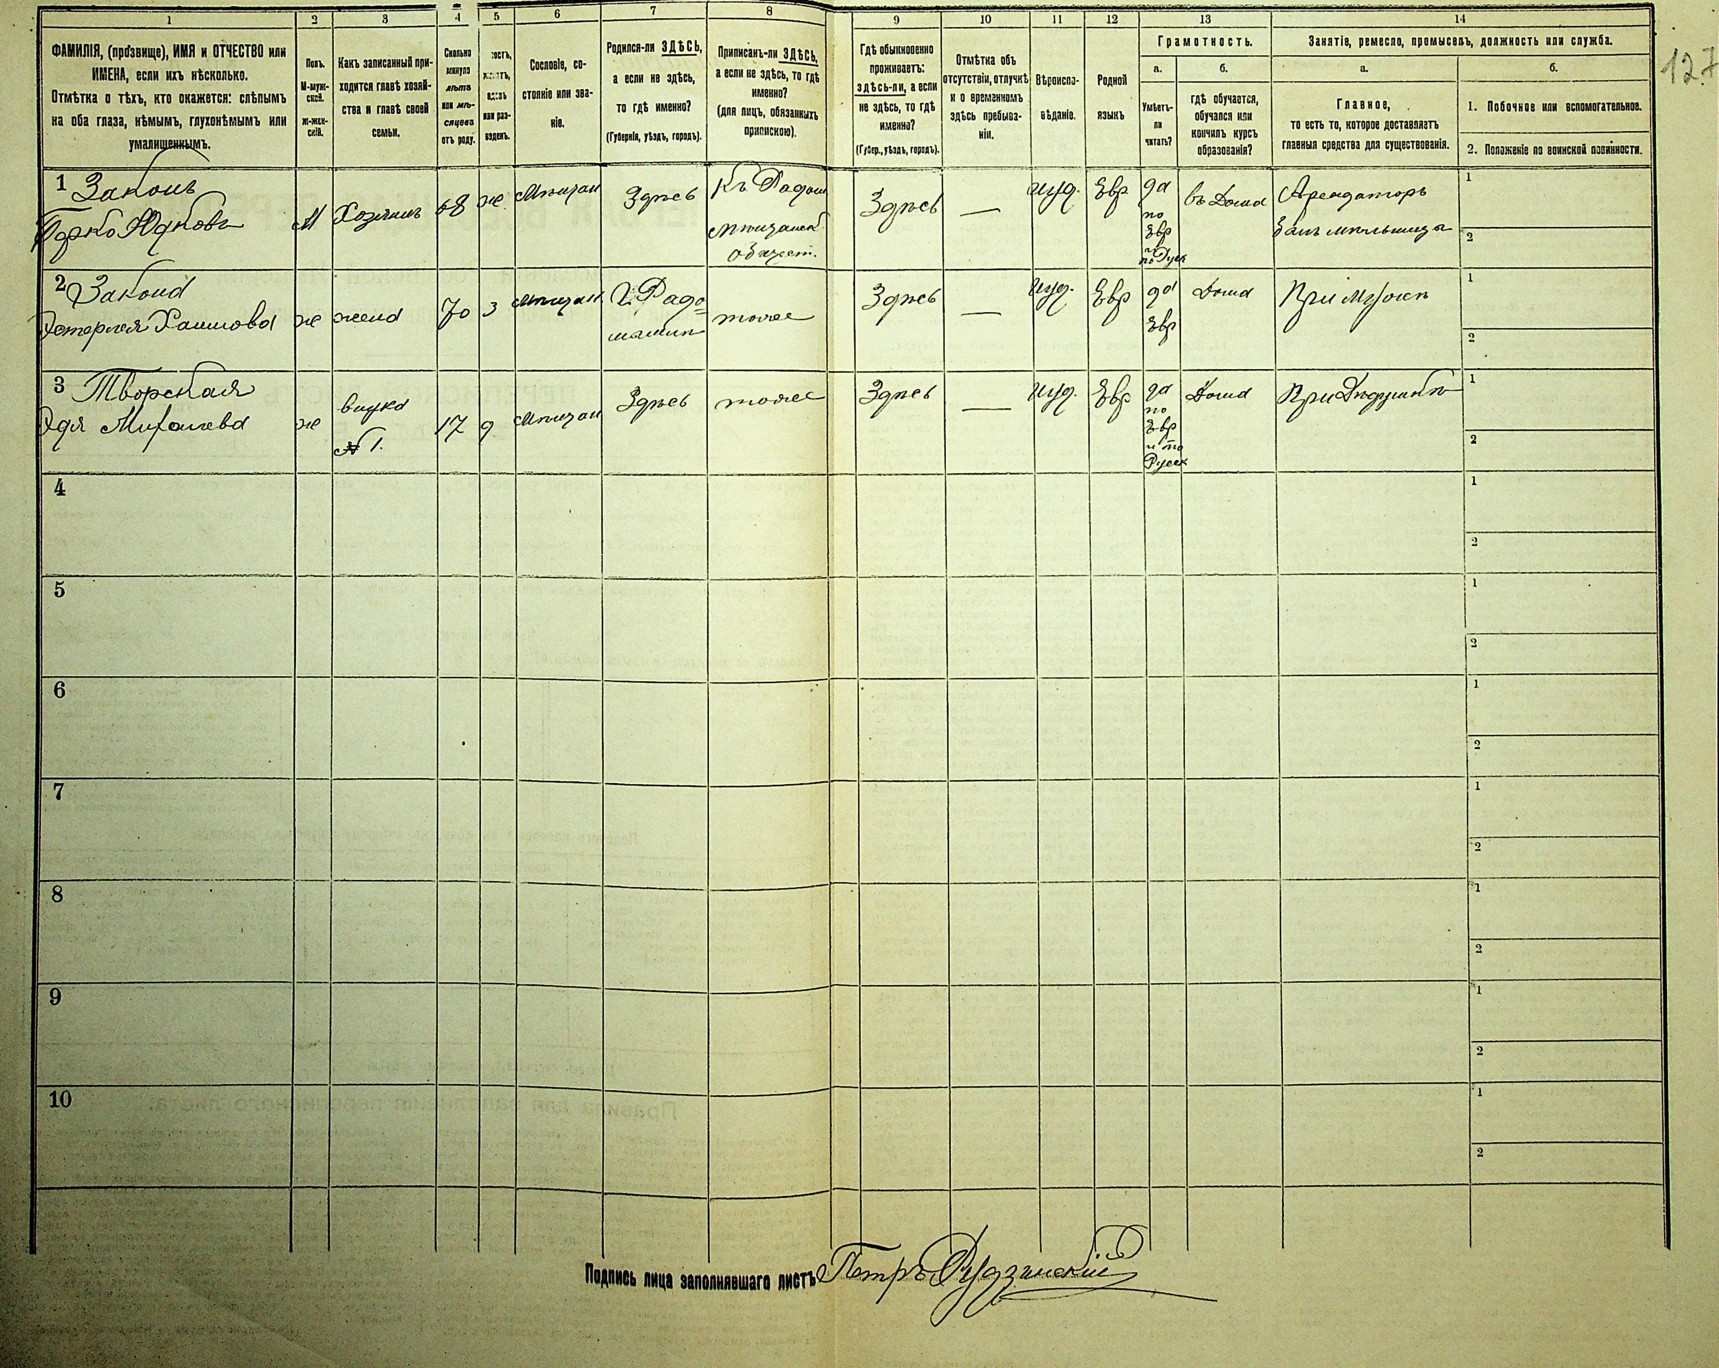 1 2 3 4 5 6 7 8 9 10 11 12 13 14
ФАМИЛІЯ, (прозвище), ИМЯ и ОТЧЕСТВО или
ИМЕНА, если ихъ нѣсколько.
Отмѣтка о тѣхъ, кто окажется: слѣпымъ
на оба глаза, нѣмымъ, глухонѣмымъ или
умалишеннымъ.
Полъ.
М-муж-
ской.
ж-жен-
скій.
Какъ записанный при-
ходится главѣ хозяй-
ства и главѣ своей
семьи.
Сколько
минуло
лѣтъ
или мѣ-
сяцевъ
отъ роду.
или раз-
веденъ.
Сословіе, со-
стояніе или зва-
ніе.
Родился-ли ЗДѢСЬ,
а если не здѣсь,
то гдѣ именно?
(Губернія, уѣздъ, городъ).
Приписанъ-ли ЗДѢСЬ,
а если не здѣсь, то гдѣ
именно?
(для лицъ, обязанныхъ
припискою).
Гдѣ обыкновенно
проживаетъ:
здѣсь-ли, а если
не здѣсь, то гдѣ
именно?
(Губер., уѣздъ, городъ).
Отмѣтка объ
отсутствіи, отлучкѣ
и о временномъ
здѣсь пребыва-
ніи.
Вѣроиспо-
вѣданіе.
Родной
языкъ
Грамотность.
а.
Умѣетъ-
ли
читать?
б.
гдѣ обучается,
обучался или
кончилъ курсъ
образованія?
Занятіе, ремесло, промыселъ, должность или служба.
а.
Главное,
то есть то, которое доставляетъ
главныя средства для существованія.
б.
1. Побочное или вспомогательное.
2. Положеніе по воинской повинности.
127
1 Законъ
Юдковъ
М
Хозяинъ
68
же
Мѣщан
Здѣсь
Къ Радом
мѣщанск
общест.
Здѣсь
—
Іуд.
Евр
да
по
Евр
и
по Руск
въ Дома
Арендаторъ
мельницы
1
2
2 Закона
Хаимова
же
жена
70
3
Мѣщан
Г. Радо=
тоже
Здѣсь
—
Іуд.
Евр
да
Евр
Дома
При мужѣ
1
2
3 Творская
же
внука
№ 1.
17
д
Мѣщан
Здѣсь
тоже
Здѣсь
—
Іуд.
Евр
да
по
Евр
и по
Русск
Дома
При Дѣдушкѣ
1
2
4
1
2
5
1
2
6
1
2
7
1
2
8
1
2
9
1
2
10
1
2
Подпись лица заполнявшаго листъ Петръ Рудзинскій